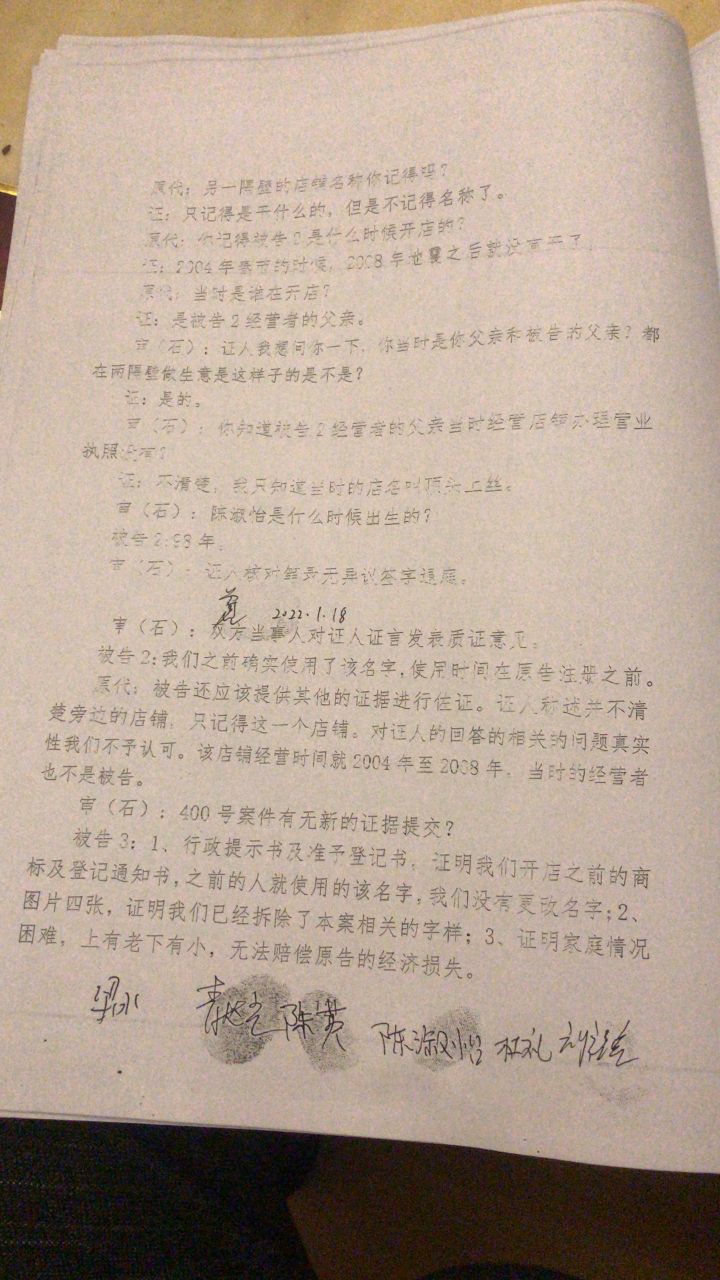 原代：另一隔壁的店铺名称你记得吗？
证：只记得是干什么的，但是不记得名称了。
原代：你记得被告2是什么时候开店的？
证：2004年春节的时候，2008年地震之后就没有开了。
原代：当时是谁在开店？
证：是被告2经营者的父亲。
审（石）：证人我想问你一下，你当时是你父亲和被告的父亲？都
在两隔壁做生意是这样子的是不是？
证：是的。
审（石）：你知道被告2经营者的父亲当时经营店铺办理营业
执照没有？
证：不清楚，我只知道当时的店名叫顶头上丝。
审（石）：陈淑怡是什么时候出生的？
被告2:98年。
审（石）：证人核对笔录无异议签字退庭。
2022.1.18
审（石）：双方当事人对证人证言发表质证意见。
被告2:我们之前确实使用了该名字,使用时间在原告注册之前。
原代：被告还应该提供其他的证据进行佐证。证人称述并不清
楚旁边的店铺，只记得这一个店铺。对证人的回答的相关的问题真实
性我们不予认可。该店铺经营时间就2004年至2008年，当时的经营者
也不是被告。
审（石）：400号案件有无新的证据提交？
被告3：1、行政提示书及准予登记书，证明我们开店之前的商
标及登记通知书,之前的人就使用的该名字,我们没有更改名字;2、
图片四张，证明我们已经拆除了本案相关的字样；3、证明家庭情况
困难，上有老下有小，无法赔偿原告的经济损失。
梁冰 陈黄 陈淑怡 杜礼